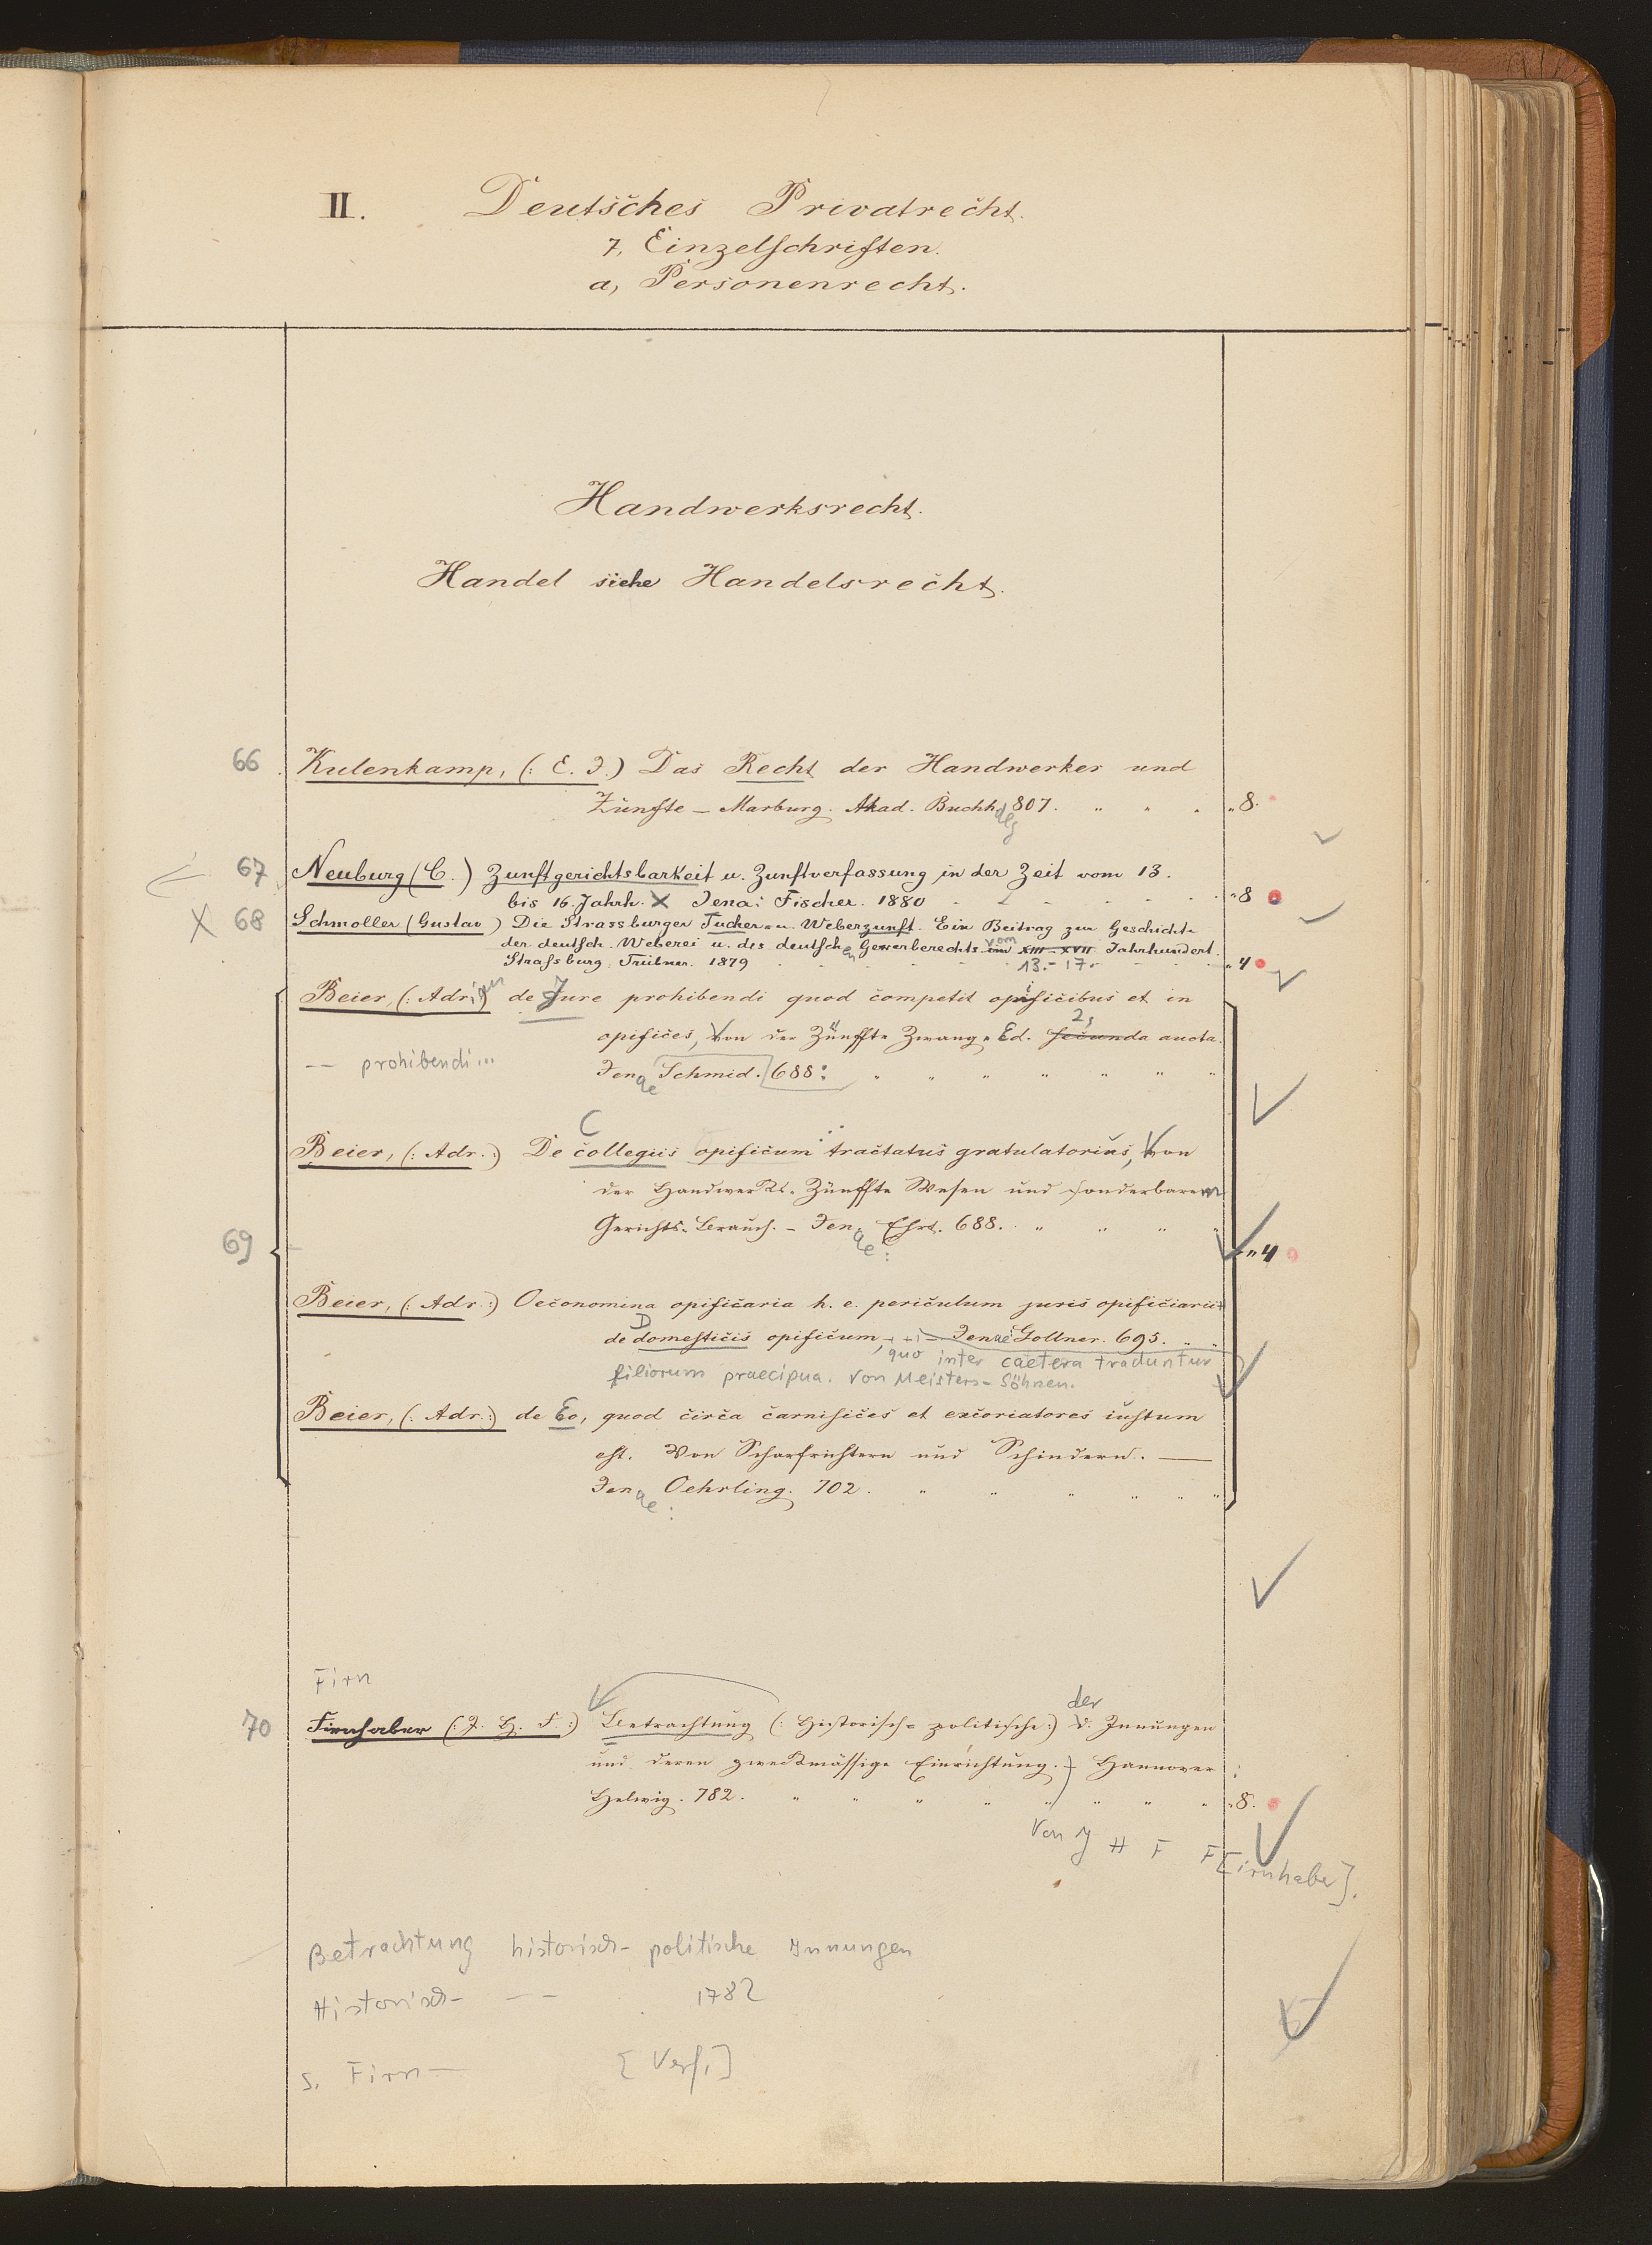 II. Deutsches Privatrecht.
7, Einzelschriften.
a, Personenrecht.
Handwerksrecht.
Handel siehe Handelsrecht.
66 Kulenkamp, (: E. J.) Das Recht der Handwerker und
Zünfte – Marburg. Akad. Buchh. 807. „ 8.
dlg
67 Neuburg (C.) Zunftgerichtsbarkeit u. Zunftverfassung in der Zeit vom 13.
bis 16. Jahrh. X Jena: Fischer. 1880 „ 8
X 68 Schmoller (Gustav) Die Strassburger Tucher- u. Weberzunft. Ein Beitrag zur Geschichte
der deutsch. Weberei u. des deutschen Gewerberechts vom XIII–XVII Jahrhundert.
Strassburg, Trübner. 1879 13.- 17.- „ 4
Beier, (: Adr.:) de Jure prohibendi quod competit opificibus et in
opifices, Von der Zünffte Zwang. Ed. secunda aucta.
2,
-- prohibendi... Jenae Schmid. 688:
C
Beier, (: Adr.:) De collegiis opificum tractatus gratulatorius, Von
der Handwerks-Zünffte Wesen und sonderbarem
Gerichts-Brauch. – Jenae: Ehrt. 688.
69 „ 4
Beier, (: Adr.:) Oeconomina opificaria h. e. periculum juris opificiarii
de domesticis opificum Jenae Gollner. 695.
D
, quo inter caetera traduntur
filiorum praecipua. Von Meisters-Söhnen.
Beier, (: Adr.:) de Eo, quod circa carnifices et excoriatores iustum
est. Von Scharfrichtern und Schindern. —
Jenae: Oehrling. 702.
Firn
70 Firnhaber (: J. H. F.:) Betrachtung (: Historisch-politische:) d. Innungen
der
und deren zweckmässige Einrichtung. Hannover:
Helwig. 782. „ 8.
Von J H F F[irnhaber].
Betrachtung historisch-politische Innungen
Historisch- -- 1782
s. Firn— [Verf.]